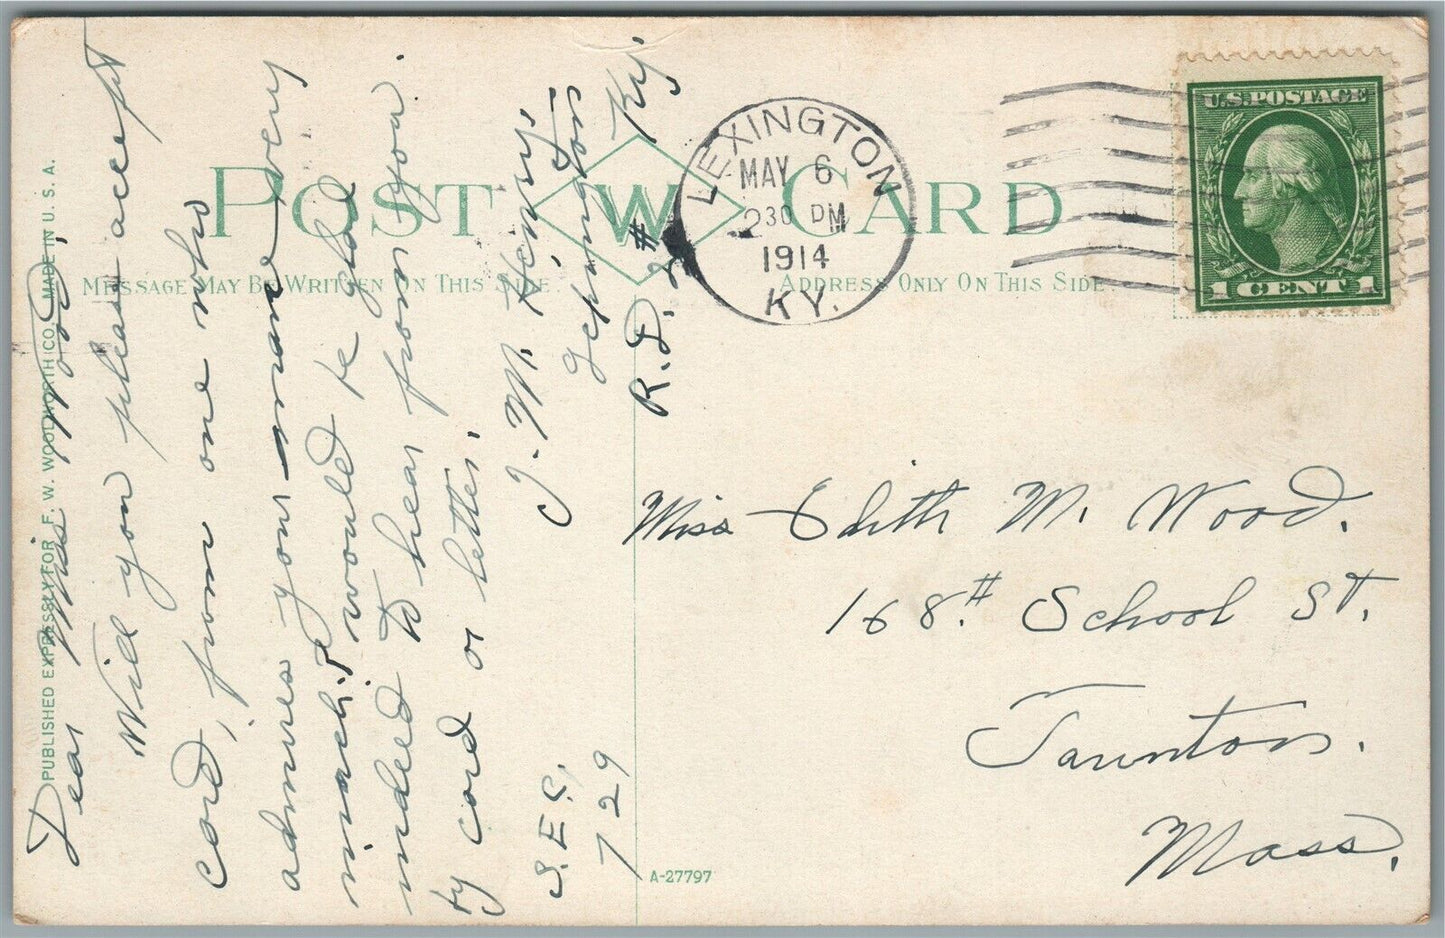 POST W CARD
MESSAGE MAY BE WRITTEN ON THIS SIDE.
ADDRESS ONLY ON THIS SIDE.
PUBLISHED EXPRESSLY FOR F. W. WOOLWORTH CO. MADE IN U. S. A.
LEXINGTON
MAY 6
230 PM
1914
KY.
U.S. POSTAGE
1 CENT 1
Dear Miss Wood,
Will you please accept
card, from one who
admires your name very
much. & would be glad
indeed to hear from you.
by card or letter.
J. M. Henry.
Jeptington Ky.
R.D. 2#
S.E.S.
729
Miss Edith M. Wood.
168.# School St.
Taunton.
Mass.
A-27797